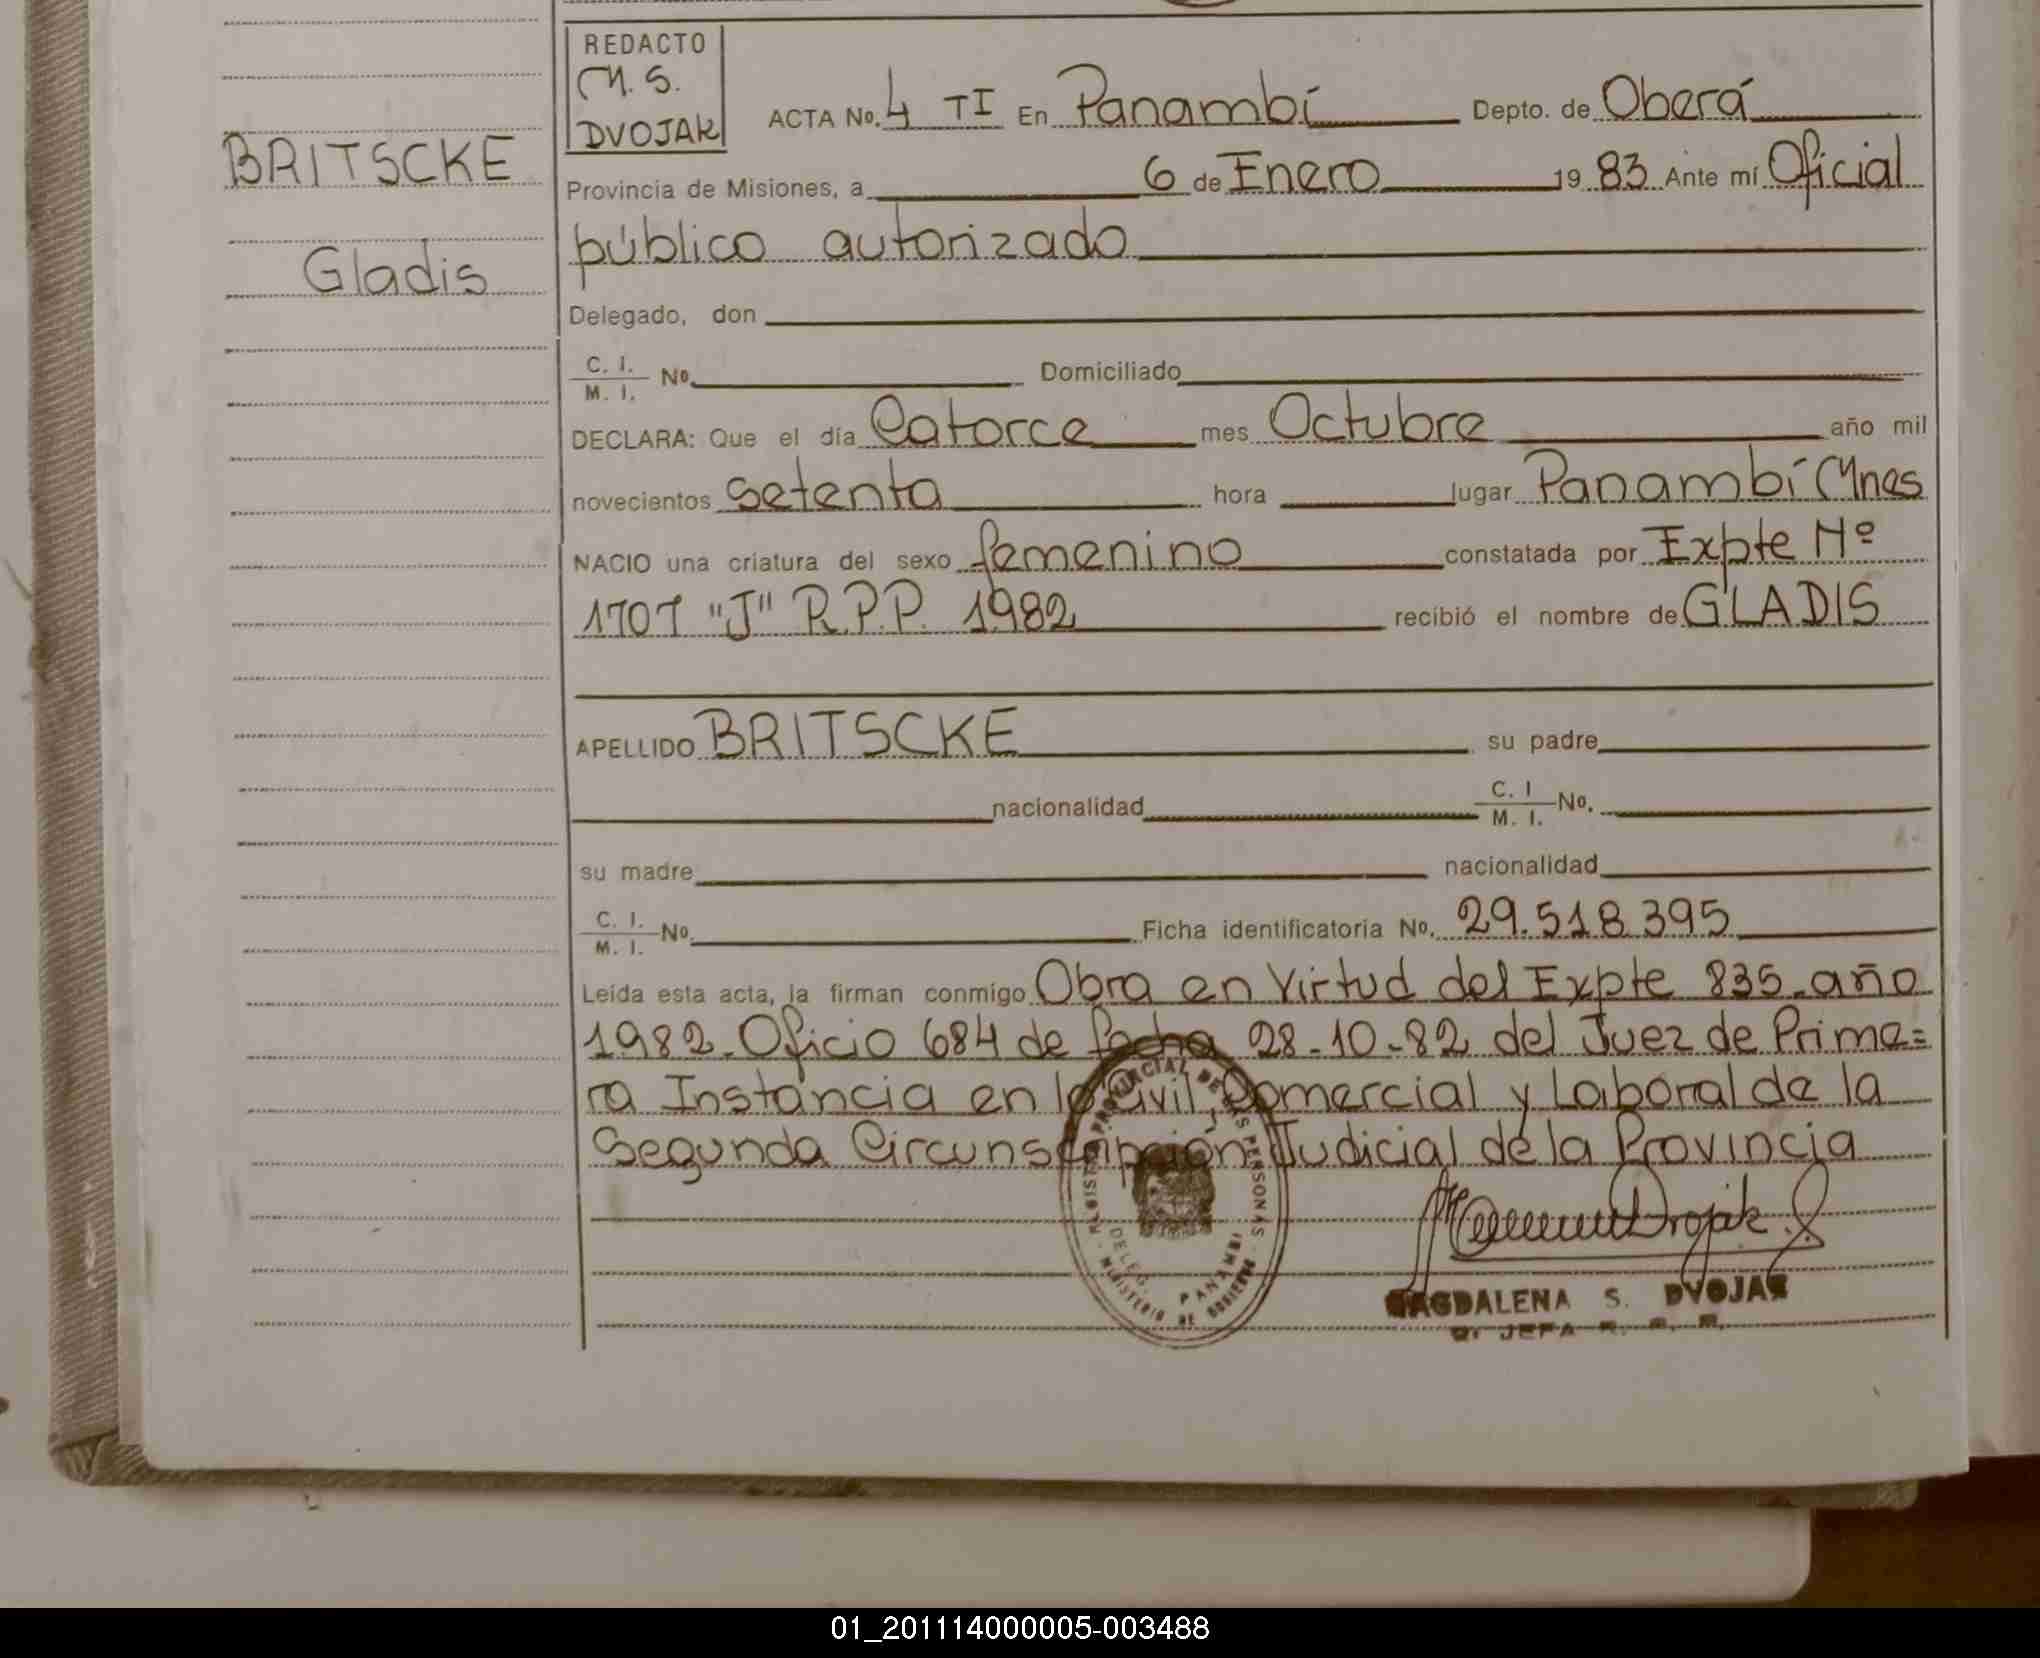 REDACTO
M. S.
DVOJAK
ACTA No. 4 TI En Panambí Depto. de Oberá
BRITSCKE
Gladis
Provincia de Misiones, a 6 de Enero 19 83 Ante mí Oficial
público autorizado
Delegado, don
C. I. / M. I. No. Domiciliado
DECLARA: Que el día Catorce mes Octubre año mil
novecientos setenta hora lugar Panambí Mnes
NACIO una criatura del sexo femenino constatada por Expte Nº
1707 "J" R.P.P. 1982 recibió el nombre de GLADIS
APELLIDO BRITSCKE su padre
nacionalidad C. I / M. I. No.
su madre nacionalidad
C. I. / M. I. No. Ficha identificatoria No. 29.518.395
Leída esta acta, la firman conmigo Obra en Virtud del Expte 835-año
1982-Oficio 684 de fecha 28-10-82 del Juez de Prime=
ra Instancia en lo Civil, Comercial y Laboral de la
Segunda Circunscripción Judicial de la Provincia
REGISTRO PROVINCIAL DE LAS PERSONAS
DELEG. PANAMBI
MINISTERIO DE GOBIERNO
MAGDALENA S. DVOJAK
JEFA
01_201114000005-003488